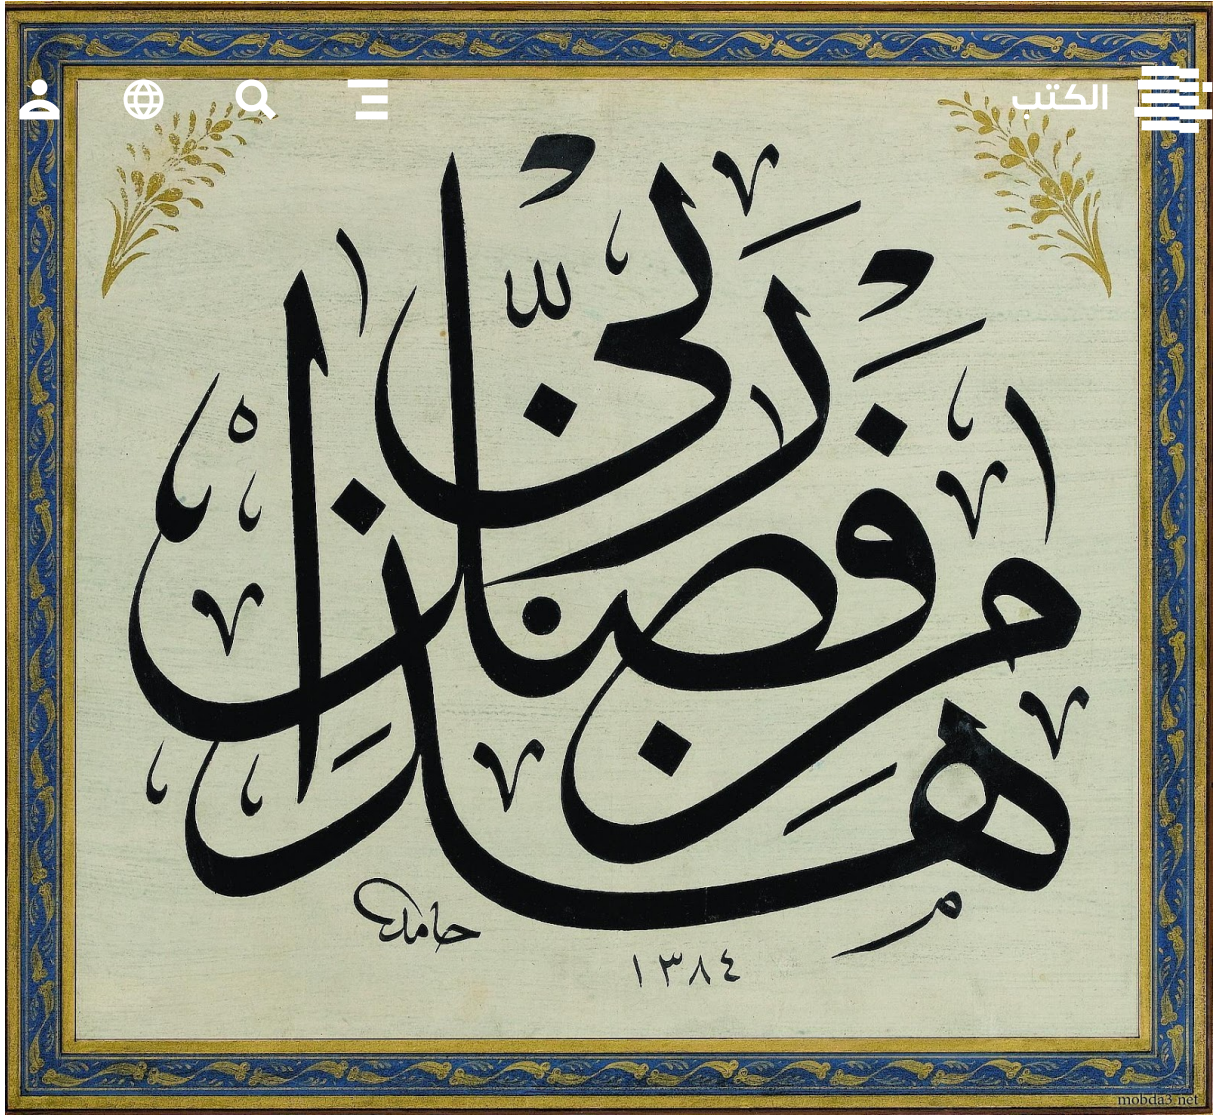 الكتب
هذا من فضل ربي
حامد
١٣٨٤
mobda3.net